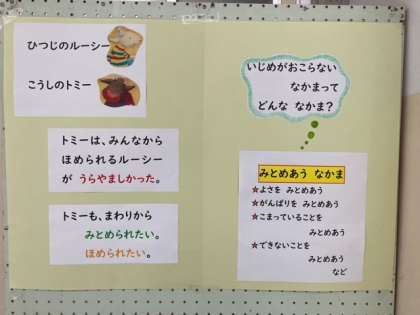 ひつじのルーシー
こうしのトミー
トミーは、みんなから
ほめられるルーシー
が うらやましかった。
トミーも、まわりから
みとめられたい。
ほめられたい。
いじめがおこらない
なかまって
どんな なかま?
みとめあう なかま
★よさを みとめあう
★がんばりを みとめあう
★こまっていることを
みとめあう
★できないことを
みとめあう
など